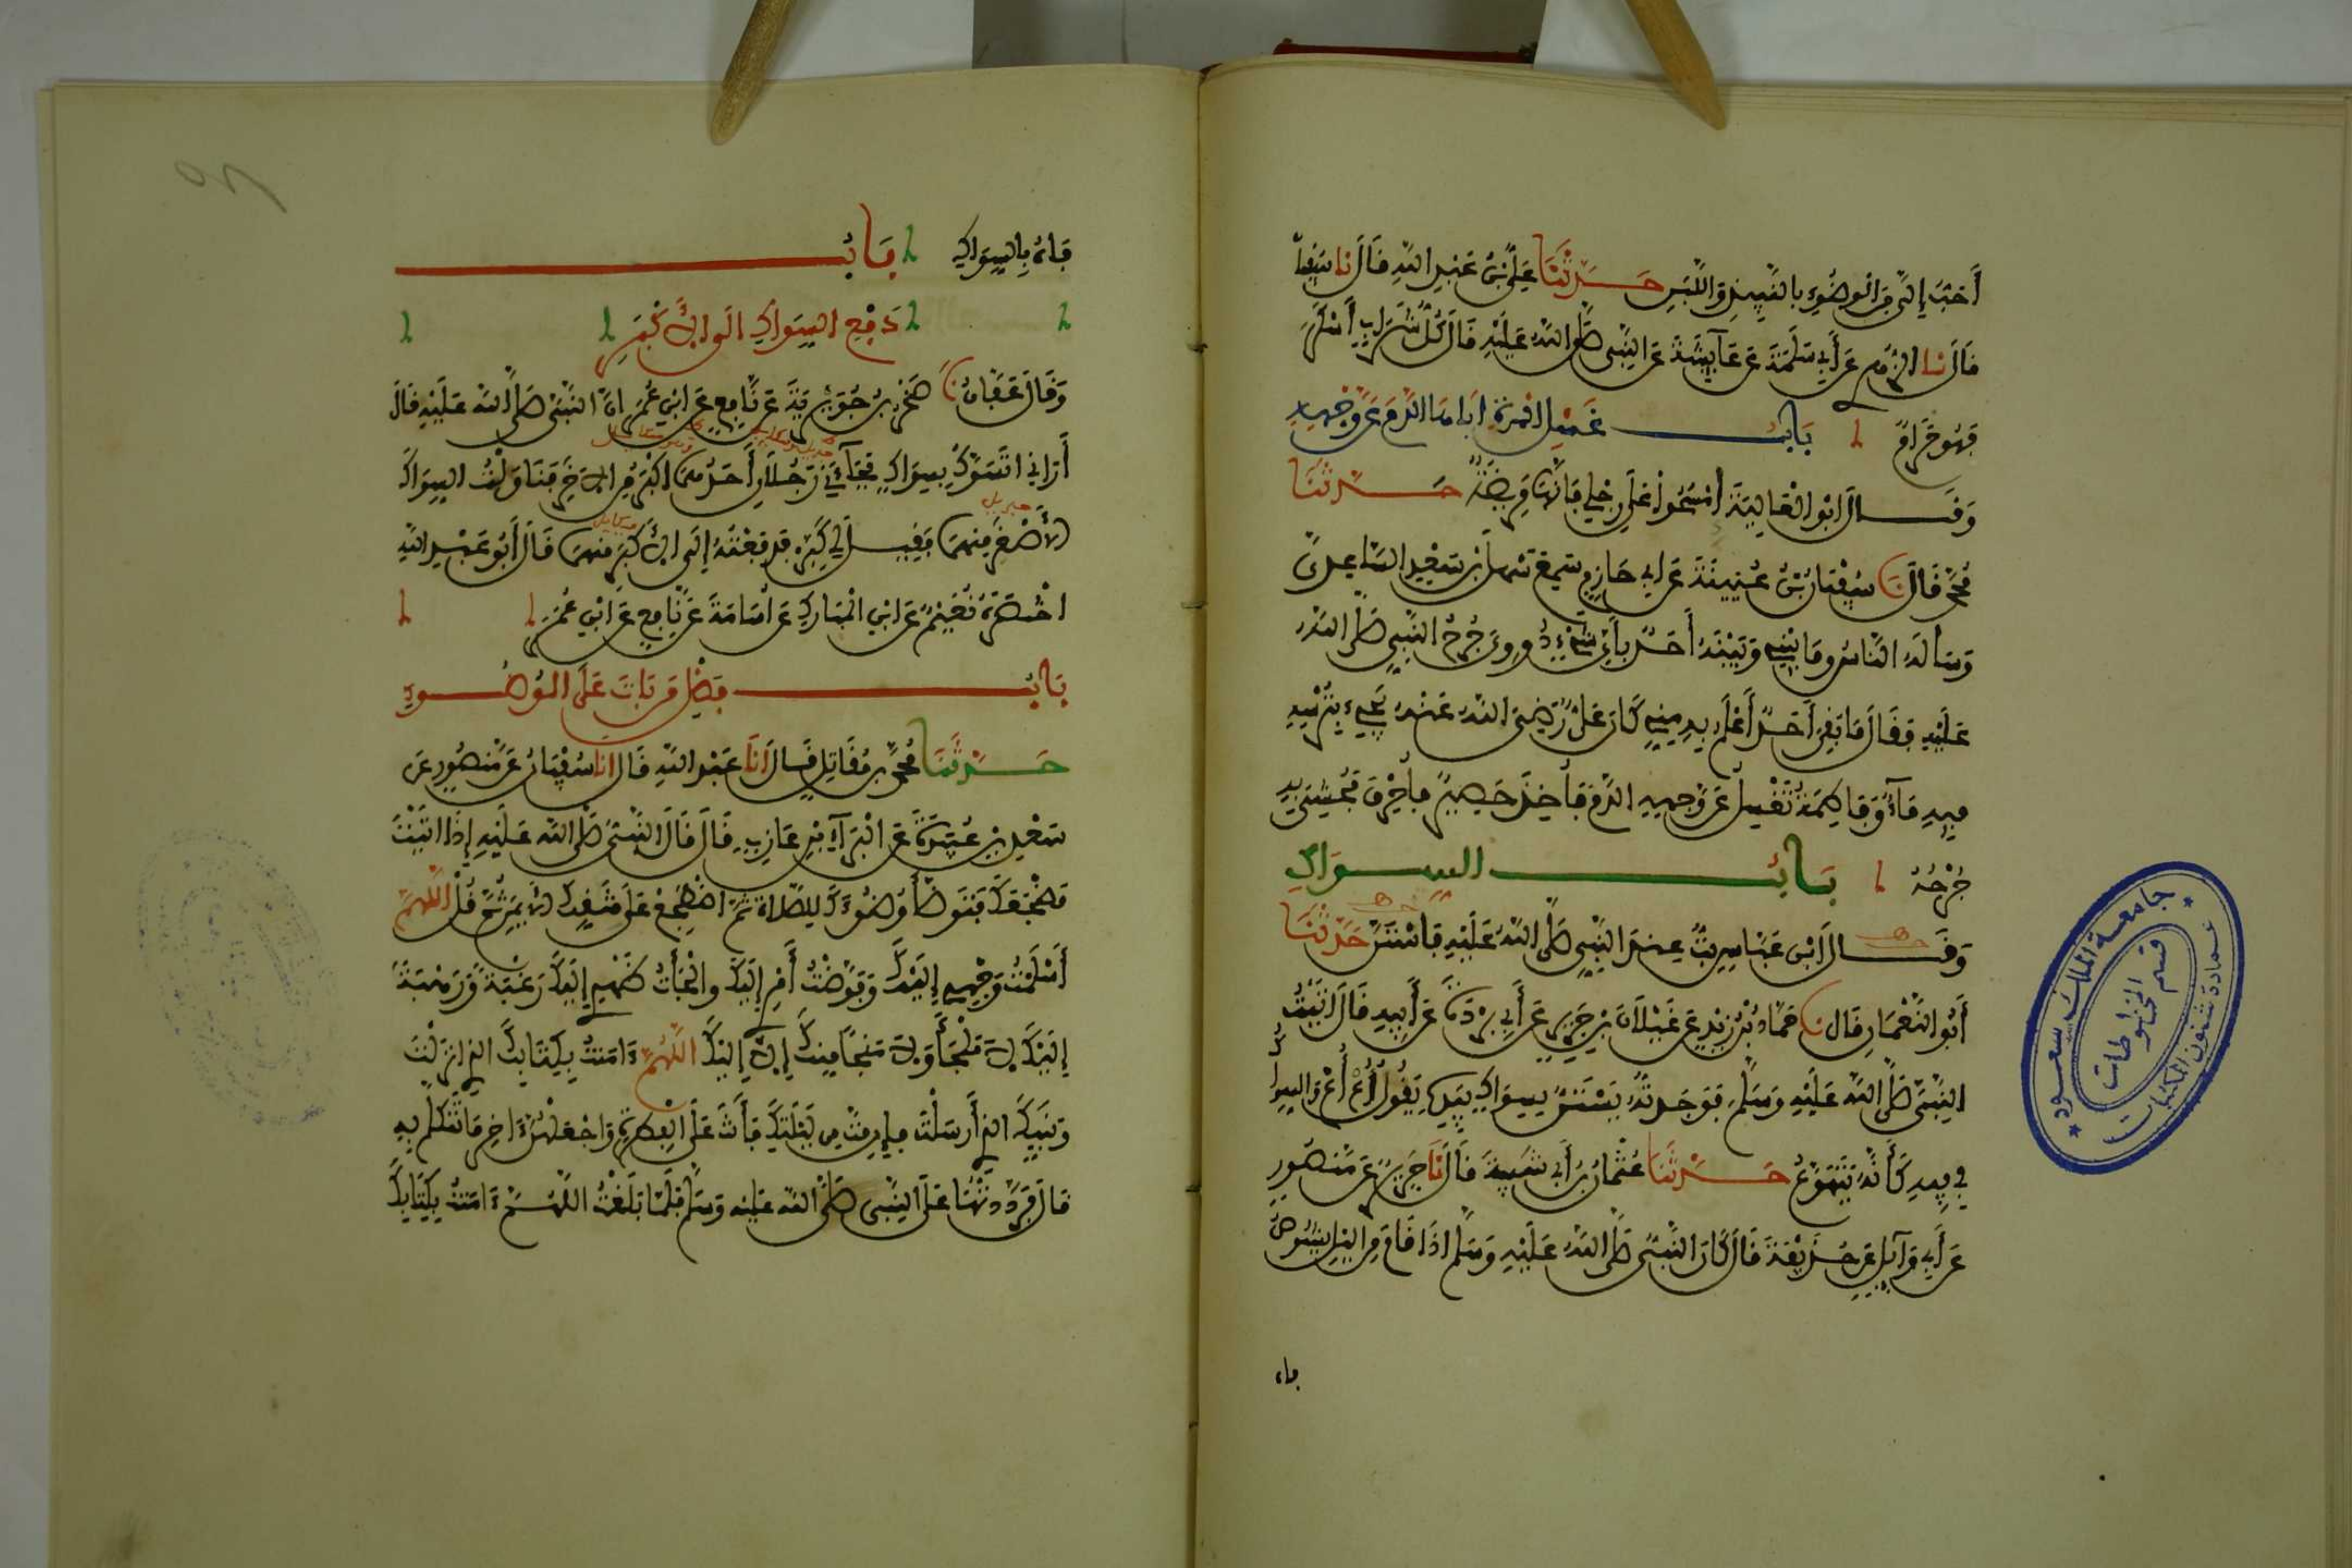 أَحَبُّ إِلَيَّ مِنَ الْوُضُوءِ بِالنَّبِيذِ وَاللَّبَنِ حَدَّثَنَا عَلِيُّ بْنُ عَبْدِ اللَّهِ قَالَ نا سُفْيَانُ
قَالَ نا الزُّهْرِي عَنْ أَبِي سَلَمَةَ عَنْ عَائِشَةَ عَنِ النَّبِيِّ صَلَّى اللَّهُ عَلَيْهِ قَالَ كُلُّ شَرَابٍ أَسْكَرَ
فَهُوَ حَرَامٌ بَابُ غَسْلِ الْمَرْأَةِ أَبَاهَا الدَّمَ عَنْ وَجْهِهِ
وَقَالَ أَبُو الْعَالِيَةِ امْسَحُوا عَلَى رِجْلِي فَإِنَّهَا مَرِيضَةٌ حَدَّثَنَا
مُحَمَّدٌ قَالَ نا سُفْيَانُ بْنُ عُيَيْنَةَ عَنْ أَبِي حَازِمٍ سَمِعَ سَهْلَ بْنَ سَعْدٍ السَّاعِدِيَّ
وَسَأَلَهُ النَّاسُ وَمَا بَيْنِي وَبَيْنَهُ أَحَدٌ بِأَيِّ شَيْءٍ دُووِيَ جُرْحُ النَّبِيِّ صَلَّى اللَّهُ
عَلَيْهِ فَقَالَ مَا بَقِيَ أَحَدٌ أَعْلَمُ بِهِ مِنِّي كَانَ عَلِيٌّ رَضِيَ اللَّهُ عَنْهُ يَجِيءُ بِتُرْسِهِ
فِيهِ مَاءٌ وَفَاطِمَةُ تَغْسِلُ عَنْ وَجْهِهِ الدَّمَ فَأُخِذَ حَصِيرٌ فَأُحْرِقَ فَحُشِيَ بِهِ
جُرْحُهُ بَابُ السِّوَاكِ
وَقَالَ ابْنُ عَبَّاسٍ بِتُّ عِنْدَ النَّبِيِّ صَلَّى اللَّهُ عَلَيْهِ فَاسْتَنَّ حَدَّثَنَا
أَبُو النُّعْمَانِ قَالَ نا حَمَّادُ بْنُ زَيْدٍ عَنْ غَيْلَانَ بْنِ جَرِيرٍ عَنْ أَبِي بُرْدَةَ عَنْ أَبِيهِ قَالَ أَتَيْتُ
النَّبِيَّ صَلَّى اللَّهُ عَلَيْهِ وَسَلَّمَ فَوَجَدْتُهُ يَسْتَنُّ بِسِوَاكٍ بِيَدِهِ يَقُولُ أُعْ أُعْ وَالسِّوَاكُ
فِي فِيهِ كَأَنَّهُ يَتَهَوَّعُ حَدَّثَنَا عُثْمَانُ بْنُ أَبِي شَيْبَةَ قَالَ نَا جَرِيرٌ عَنْ مَنْصُورٍ
عَنْ أَبِي وَائِلٍ عَنْ حُذَيْفَةَ قَالَ كَانَ النَّبِيُّ صَلَّى اللَّهُ عَلَيْهِ وَسَلَّمَ إِذَا قَامَ مِنَ اللَّيْلِ يَشُوصُ
فاه
فَاهُ بِالسِّوَاكِ بَابُ
دَفْعِ السِّوَاكِ إِلَى الْأَكْبَرِ
وَقَالَ عَفَّانُ نا صَخْرُ بْنُ جُوَيْرِيَةَ عَنْ نَافِعٍ عَنِ ابْنِ عُمَرَ أَنَّ النَّبِيَّ صَلَّى اللَّهُ عَلَيْهِ قَالَ
أَرَانِي أَتَسَوَّكُ بِسِوَاكٍ فَجَاءَنِي رَجُلَانِ أَحَدُهُمَا أَكْبَرُ مِنَ الْآخَرِ فَنَاوَلْتُ السِّوَاكَ
جبريل
الْأَصْغَرَ مِنْهُمَا فَقِيلَ لِي كَبِّرْ فَدَفَعْتُهُ إِلَى الْأَكْبَرِ مِنْهُمَا قَالَ أَبُو عَبْدِ اللَّهِ
اخْتَصَرَهُ نُعَيْمٌ عَنِ ابْنِ الْمُبَارَكِ عَنْ أُسَامَةَ عَنْ نَافِعٍ عَنِ ابْنِ عُمَرَ
بَابُ فَضْلِ مَنْ بَاتَ عَلَى الْوُضُوءِ
حَدَّثَنَا مُحَمَّدُ بْنُ مُقَاتِلٍ قَالَ أَنَا عَبْدُ اللَّهِ قَالَ أَنَا سُفْيَانُ عَنْ مَنْصُورٍ عَنْ
سَعْدِ بْنِ عُبَيْدَةَ عَنِ الْبَرَاءِ بْنِ عَازِبٍ قَالَ قَالَ النَّبِيُّ صَلَّى اللَّهُ عَلَيْهِ إِذَا أَتَيْتَ
مَضْجَعَكَ فَتَوَضَّأْ وُضُوءَكَ لِلصَّلَاةِ ثُمَّ اضْطَجِعْ عَلَى شِقِّكَ الْأَيْمَنِ ثُمَّ قُلْ اللَّهُمَّ
أَسْلَمْتُ وَجْهِي إِلَيْكَ وَفَوَّضْتُ أَمْرِي إِلَيْكَ وَأَلْجَأْتُ ظَهْرِي إِلَيْكَ رَغْبَةً وَرَهْبَةً
إِلَيْكَ لَا مَلْجَأَ وَلَا مَنْجَا مِنْكَ إِلَّا إِلَيْكَ اللَّهُمَّ ءَامَنْتُ بِكِتَابِكَ الَّذِي أَنْزَلْتَ
وَنَبِيِّكَ الَّذِي أَرْسَلْتَ فَإِنْ مِتَّ مِنْ لَيْلَتِكَ فَأَنْتَ عَلَى الْفِطْرَةِ وَاجْعَلْهُنَّ ءَاخِرَ مَا تَتَكَلَّمُ بِهِ
قَالَ فَرَدَّدْتُهَا عَلَى النَّبِيِّ صَلَّى اللَّهُ عَلَيْهِ وَسَلَّمَ فَلَمَّا بَلَغْتُ اللَّهُمَّ ءَامَنْتُ بِكِتَابِكَ
جامعة الملك سعود
عمادة شئون المكتبات
قسم المخطوطات